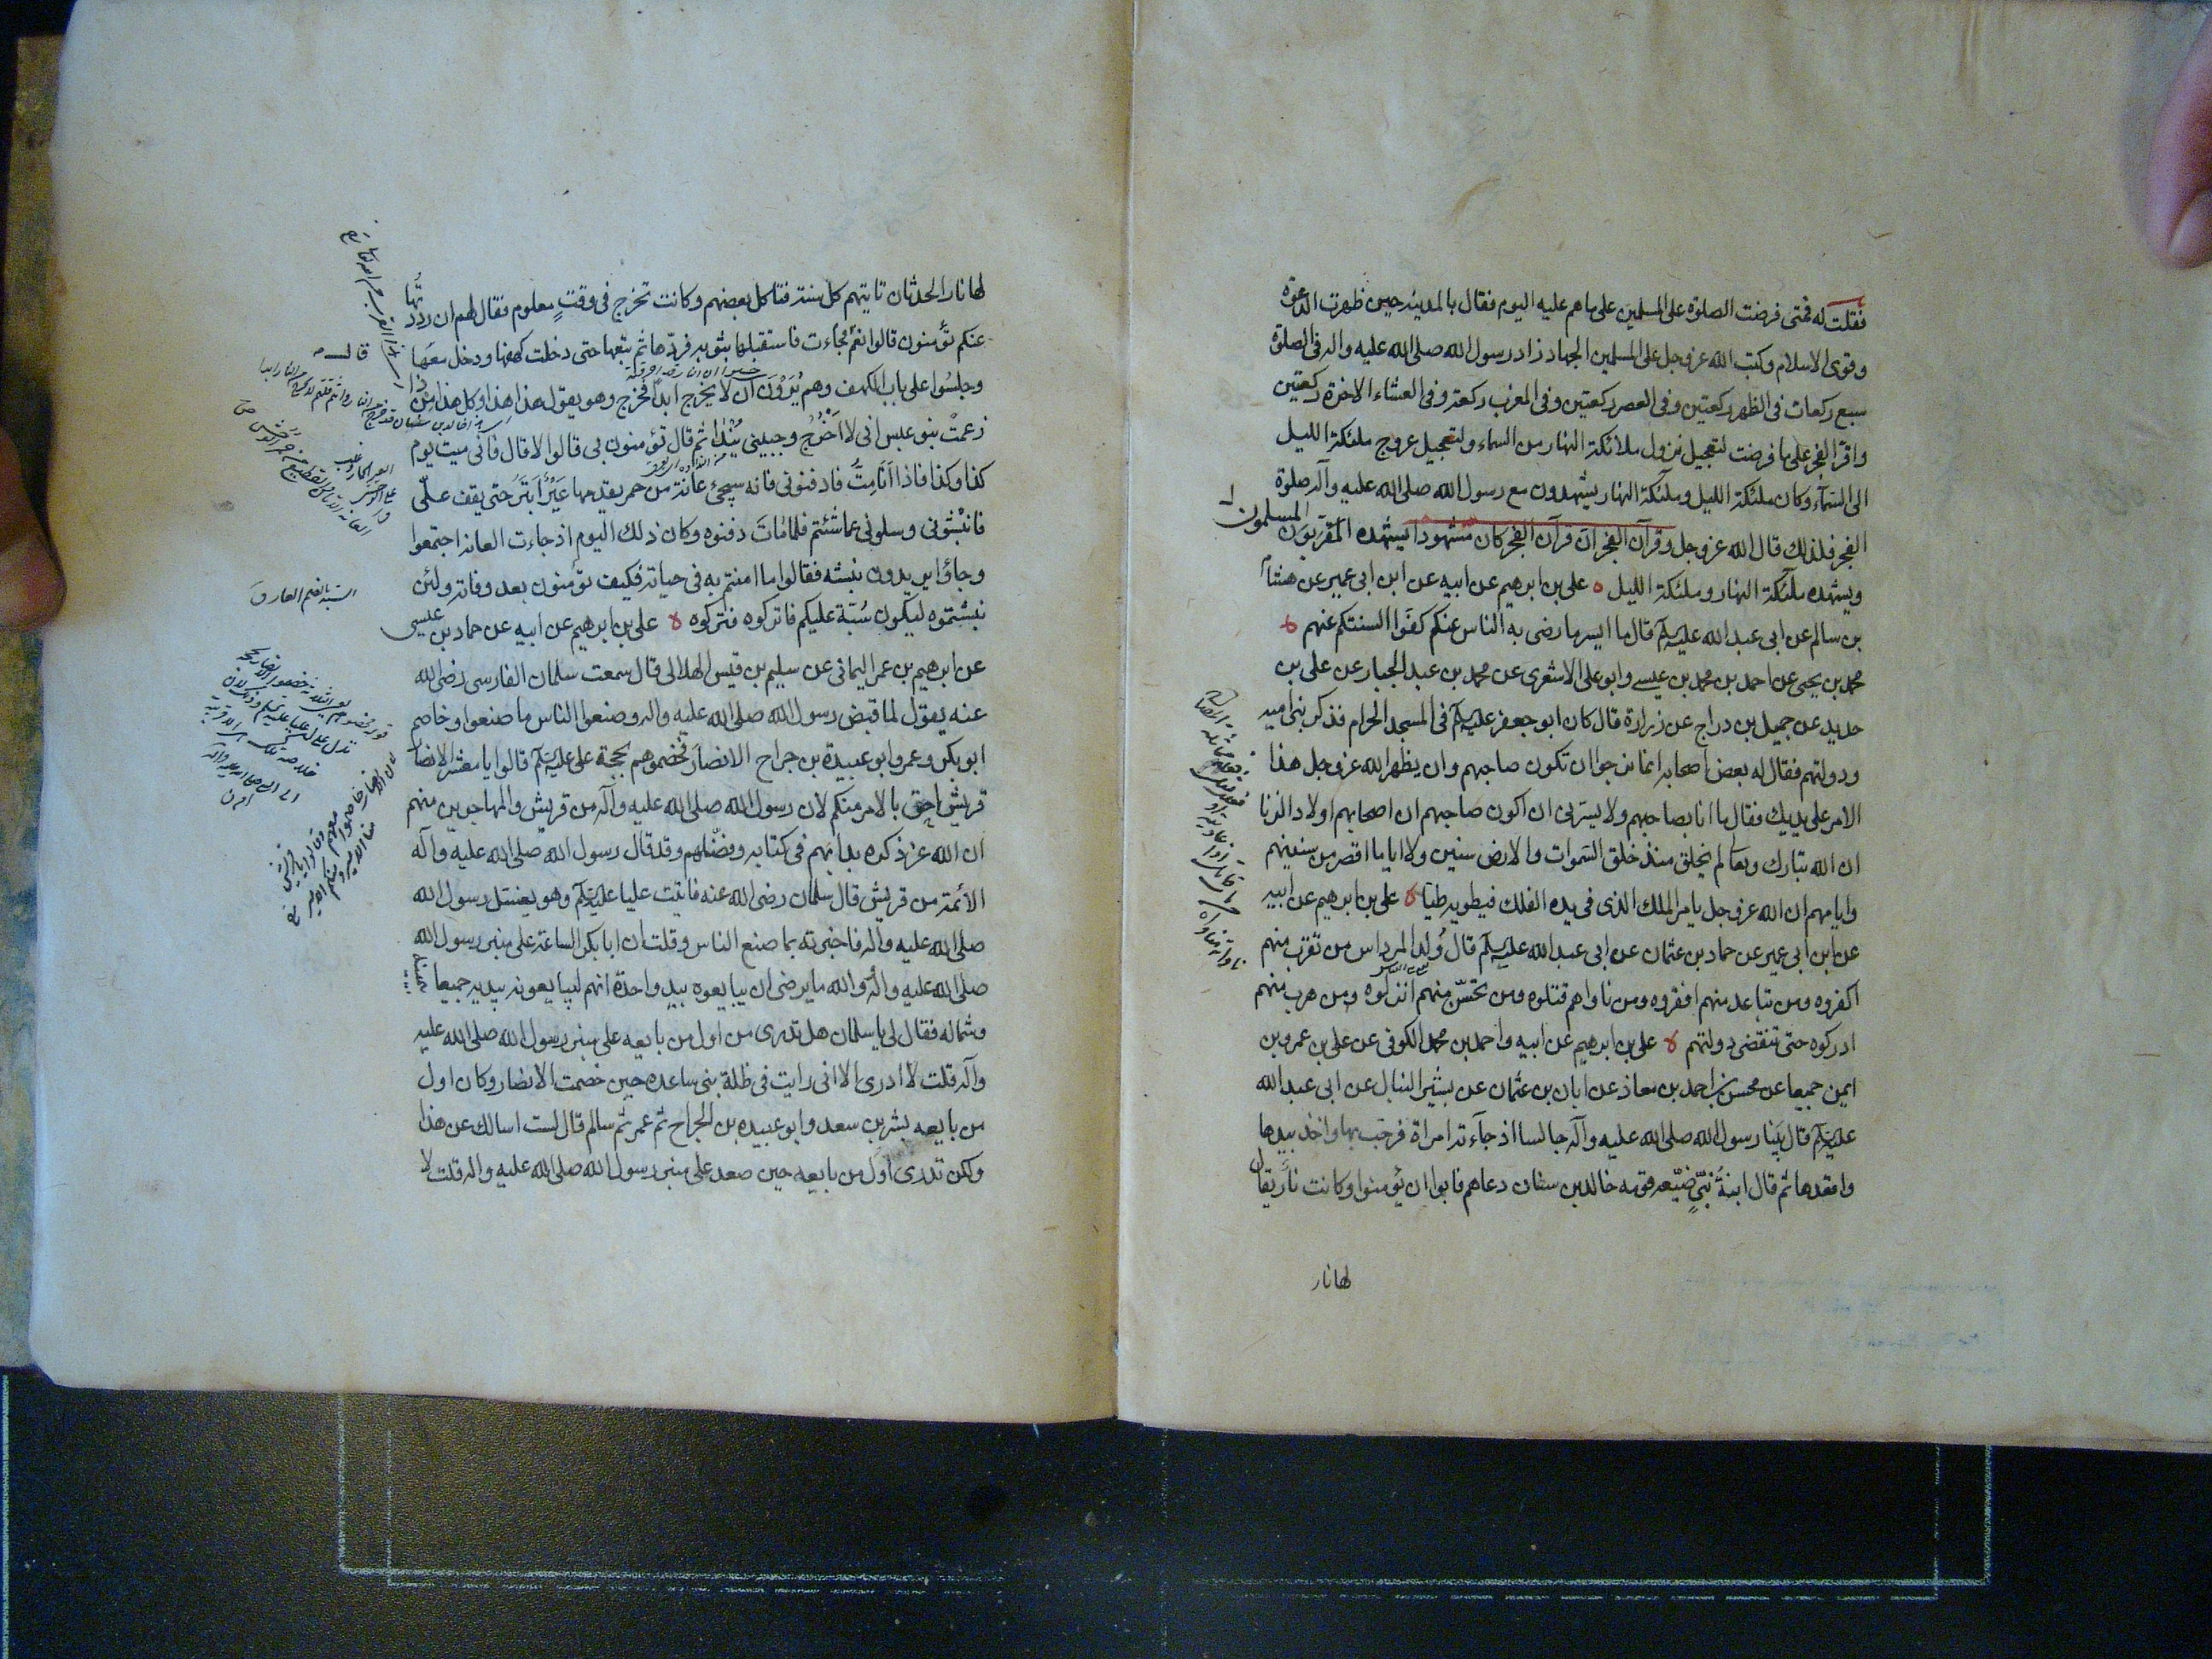 فقلت له فمتى فرضت الصلوة على المسلمين على ما هم عليه اليوم فقال بالمدينة حين ظهرت الدعوة
وقوى الاسلام وكتب الله عز وجل على المسلمين الجهاد زاد رسول الله صلى الله عليه واله فى الصلوة
سبع ركعات فى الظهر ركعتين وفى العصر ركعتين وفى المغرب ركعة وفى العشاء الاخرة ركعتين
واقر الفجر على ما فرضت لتعجيل نزول ملائكة النهار من السماء ولتعجيل عروج ملئكة الليل
الى السماء وكان ملئكة الليل وملئكة النهار يشهدون مع رسول الله صلى الله عليه وآله صلوة
الفجر فلذلك قال الله عز وجل وقرآن الفجر ان قرآن الفجر كان مشهودا يشهده المسلمون
ويشهده ملئكة النهار وملئكة الليل ه على بن ابرهيم عن ابيه عن ابن ابى عمير عن هشام
بن سالم عن ابى عبد الله عليه السلم قال ما ايسر ما رضى به الناس عنكم كفوا السنتكم عنهم
محمد بن يحيى عن احمد بن محمد بن عيسى وابو على الاشعرى عن محمد بن عبد الجبار عن على بن
حديد عن جميل بن دراج عن زرارة قال كان ابو جعفر عليه السلم فى المسجد الحرام فذكر بنى امية
ودولتهم فقال له بعض اصحابه انما نرجوا ان تكون صاحبهم وان يظهر الله عز وجل هذا
الامر على يديك فقال ما انا بصاحبهم ولا يسرنى ان اكون صاحبهم ان اصحابهم اولاد الزنا
ان الله تبارك وتعالى لم يخلق منذ خلق السموات والارض سنين ولا اياما اقصر من سنينهم
وايامهم ان الله عز وجل يامر الملك الذى فى يده الفلك فيطويه طيا على بن ابرهيم عن ابيه
عن ابن ابى عمير عن حماد بن عثمان عن ابى عبد الله عليه السلم قال ولد المرداس من تقرب منهم
اكفروه ومن تباعد منهم افقروه ومن ناواهم قتلوه ومن تحصن منهم انزلوه ومن هرب منهم
ادركوه حتى تنقضى دولتهم على بن ابرهيم عن ابيه واحمد بن محمد الكوفى عن على بن عمرو بن
ايمن جميعا عن محسن بن احمد بن معاذ عن ابان بن عثمان عن بشير النبال عن ابى عبد الله
عليه السلم قال بينا رسول الله صلى الله عليه وآله جالسا اذ جآءته امراة فرحب بها واخذ بيدها
واقعدها ثم قال ابنة نبى ضيعه قومه خالد بن سنان دعاهم فابوا ان يؤمنوا وكانت نار يقال
لها نار
لها نار الحدثان تاتيهم كل سنة فتاكل بعضهم وكانت تخرج فى وقت معلوم فقال لهم ان رددتها
عنكم تؤمنون قالوا نعم فجاءت فاستقبلها بثوبه فردها ثم تبعها حتى دخلت كهفها ودخل معها
وجلسوا على باب الكهف وهم يرون ان لا يخرج ابدا فخرج وهو يقول هذا هذا وكل هذا من ذا
زعمت بنو عبس انى لا اخرج وجبينى يندا ثم قال تؤمنون بى قالوا لا قال فانى ميت يوم
كذا وكذا فاذا انا مت فادفنونى فانه سيجئ عانة من حمر يقدمها عير ابتر حتى يقف على
فانبشونى وسلونى عما شئتم فلما مات دفنوه وكان ذلك اليوم اذ جاءت العانة اجتمعوا
وجاؤا يريدون نبشه فقالوا ما امنتم به فى حياته فكيف تؤمنون بعد وفاته ولئن
نبشتموه ليكون سبة عليكم فاتركوه فتركوه على بن ابرهيم عن ابيه عن حماد بن عيسى
عن ابرهيم بن عمر اليمانى عن سليم بن قيس الهلالى قال سمعت سلمان الفارسى رضى الله
عنه يقول لما قبض رسول الله صلى الله عليه واله وصنعوا الناس ما صنعوا وخاصم
ابو بكر وعمر وابو عبيدة بن جراح الانصار فخصموهم بحجة على عليه السلم قالوا يا معشر الانصار
قريش احق بالامر منكم لان رسول الله صلى الله عليه وآله من قريش والمهاجرين منهم
ان الله عز ذكره بدا بهم فى كتابه وفضلهم وقد قال رسول الله صلى الله عليه وآله
الائمة من قريش قال سلمان رضى الله عنه فاتيت عليا عليه السلم وهو يغسل رسول الله
صلى الله عليه واله فاخبرته بما صنع الناس وقلت ان ابا بكر الساعة على منبر رسول الله
صلى الله عليه واله والله ما يرضى ان يبايعوه بيد واحدة انهم ليبايعونه بيديه جميعا بيمينه
وشماله فقال لى يا سلمان هل تدرى من اول من بايعه على منبر رسول الله صلى الله عليه
وآله قلت لا ادرى الا انى رايت فى ظلة بنى ساعده حين خصمت الانصار وكان اول
من بايعه بشر بن سعد وابو عبيده بن الجراح ثم عمر ثم سالم قال لست اسالك عن هذا
ولكن تدرى اول من بايعه حين صعد على منبر رسول الله صلى الله عليه واله قلت لا